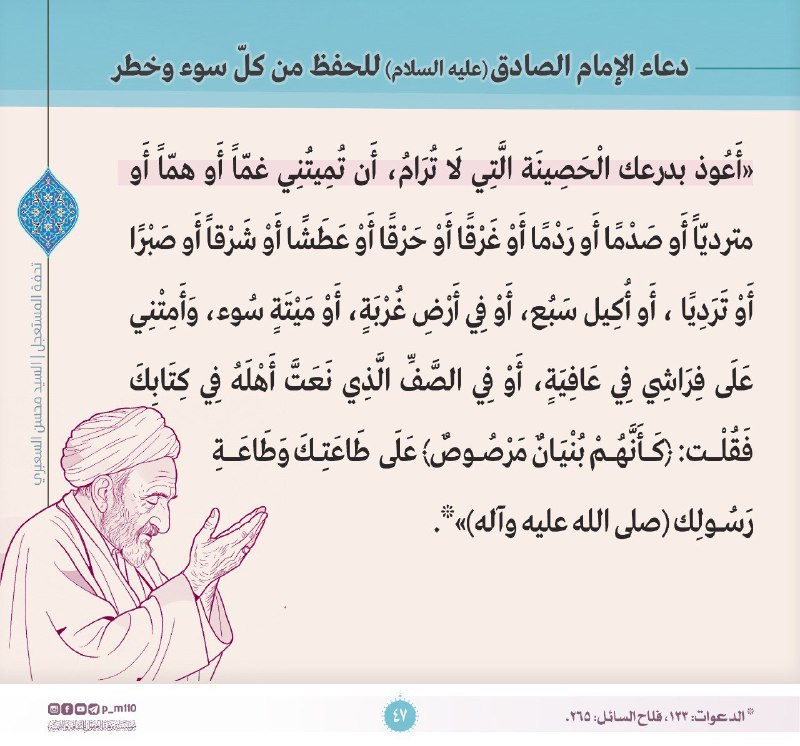 دعاء الإمام الصادق (عليه السلام) للحفظ من كلّ سوء وخطر
«أَعُوذ بدرعك الْحَصِينَة الَّتِي لَا تُرَامُ، أَن تُمِيتُنِي غمّاً أَو همّاً أَو
مترديّاً أَو صَدْمًا أَو رَدْمًا أَوْ غَرْقًا أَوْ حَرْقًا أَوْ عَطَشًا أَوْ شَرْقاً أَو صَبْرًا
أَوْ تَرَدِيًا ، أَو أُكِيل سَبُع، أَوْ فِي أَرْضِ غُرْبَةٍ، أَوْ مَيْتَةٍ سُوء، وَأَمِتْنِي
عَلَى فِرَاشِي فِي عَافِيَةٍ، أَوْ فِي الصَّفِّ الَّذِي نَعَتَّ أَهْلَهُ فِي كِتَابِكَ
فَقُلْت: {كَأَنَّهُمْ بُنْيَانٌ مَرْصُوصٌ} عَلَى طَاعَتِكَ وَطَاعَةِ
رَسُولِك (صلى الله عليه وآله)»*.
تحفة المستعجل | السيد محسن السعبري
* الدعوات: ١٣٣، فلاح السائل: ٢٦٥.
٤٧
p_m110